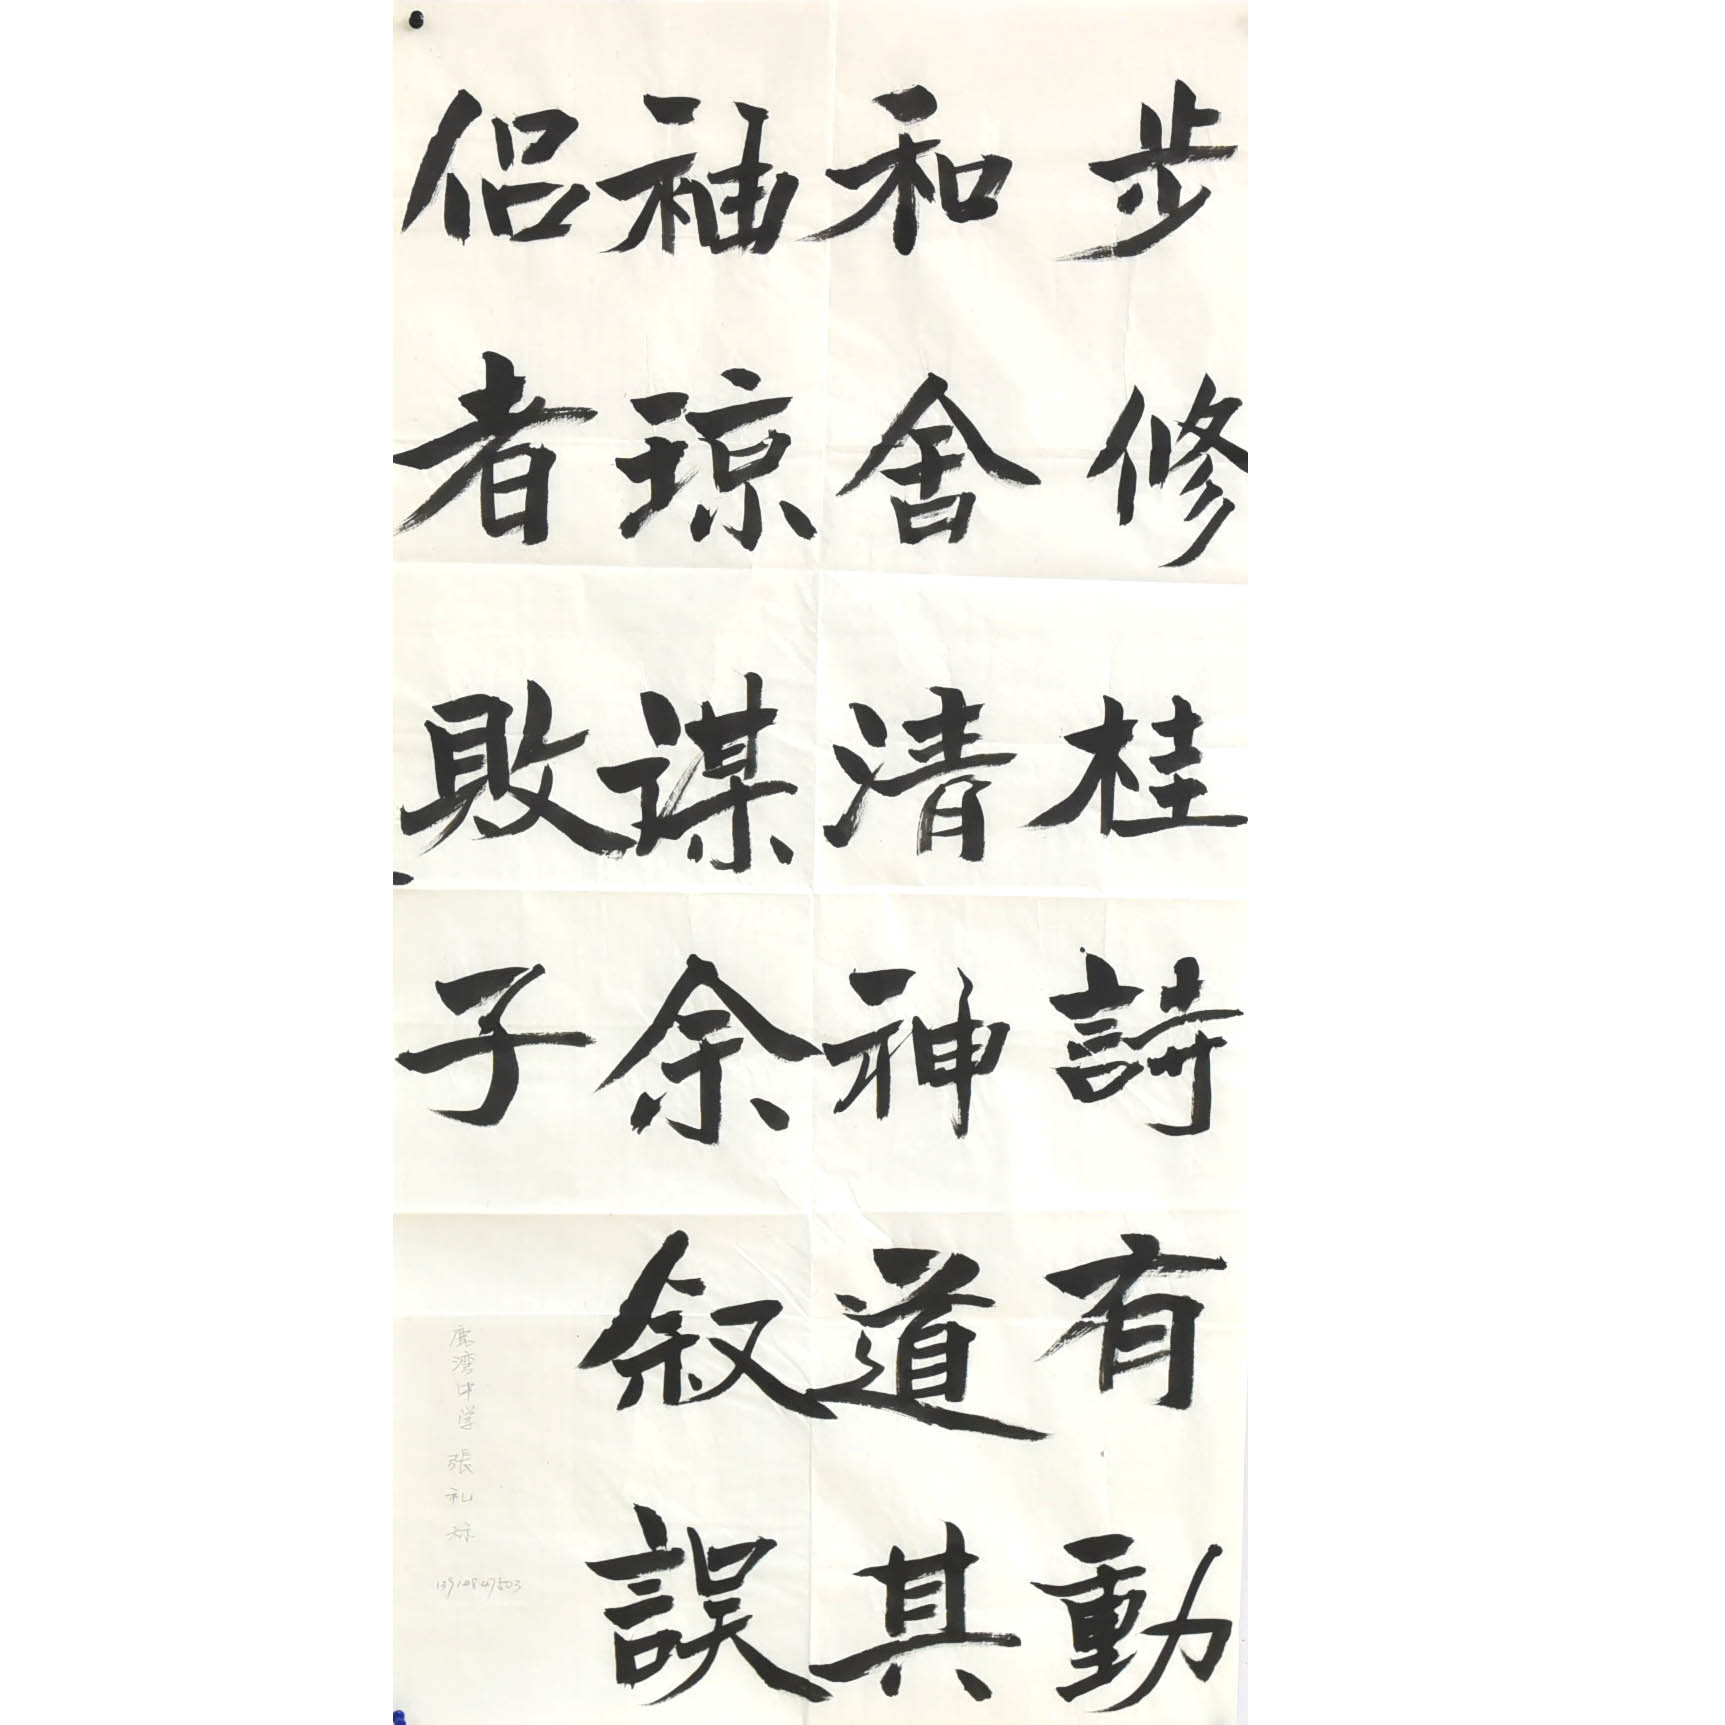 步修桂詩有動
和舍清神道其
袖琼谋余叙誤
侣者敗子
鹿湾中学 張礼